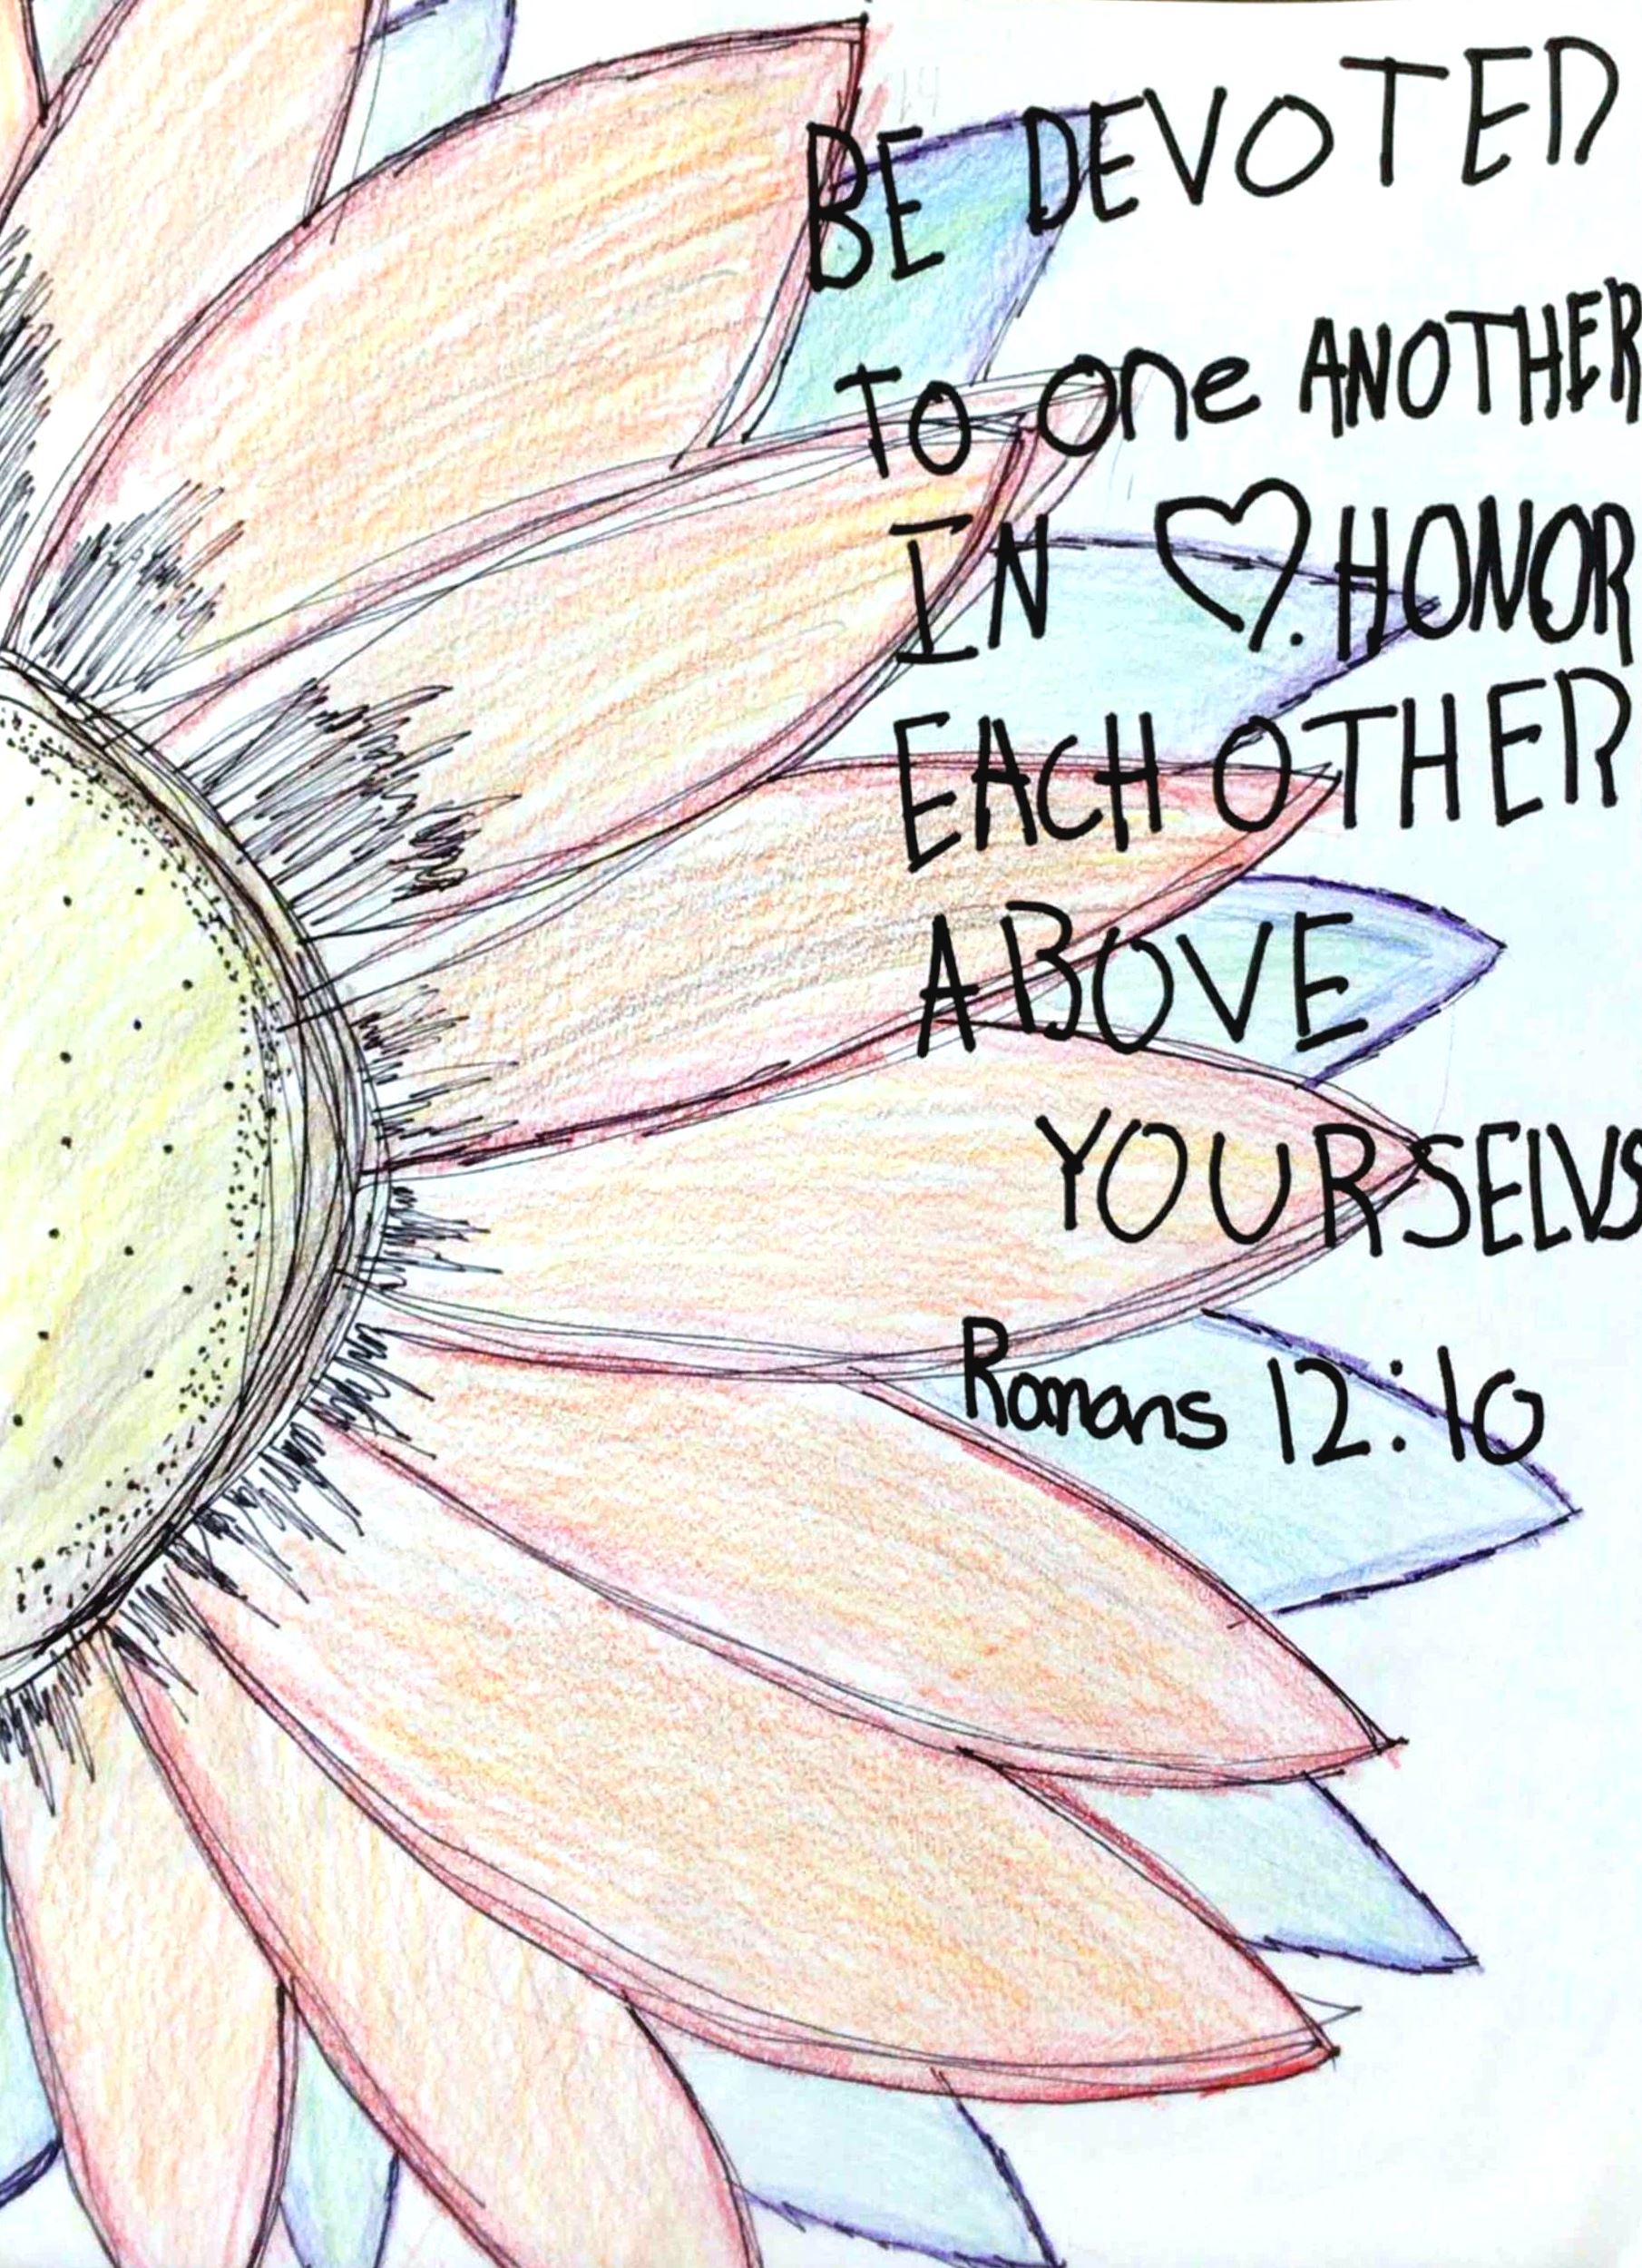 BE DEVOTED
TO one ANOTHER
IN ♡. HONOR
EACH OTHER
ABOVE
YOURSELVS
Romans 12:10